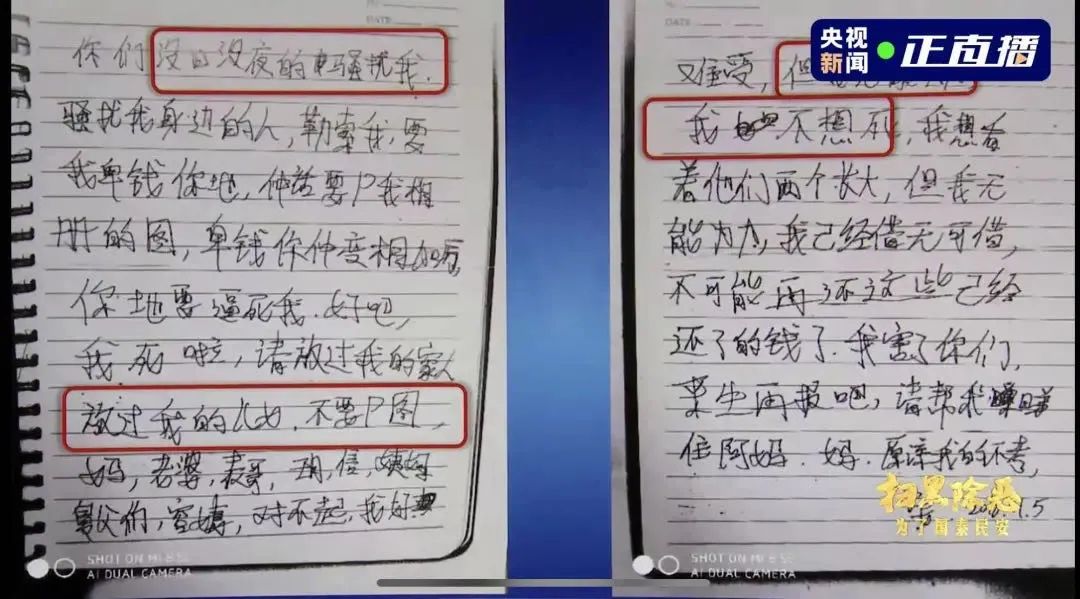 你们没日没夜的骚扰我.
骚扰我身边的人,勒索我,要
我卑钱你地,仲话要P我相
册的图,卑钱你仲变相
你地要逼死我.好吧,
我死啦,请放过我的家人
放过我的儿女.不要P图,
妈,老婆,表哥,信,姨妈
舅父们,对不起,我好
SHOT ON MI 8 SE
AI DUAL CAMERA
DATE
央视新闻 正直播
难受,但
我不想死,我想看
着他们两个长大,但我无
能为力,我已经借无可借,
不可能再还这些已经
还了的钱了.我害了你们,
来生再报吧,请帮我
住阿妈.妈.原谅我的不孝,
扫黑除恶
为了国泰民安
SHOT ON MI 8 SE
AI DUAL CAMERA